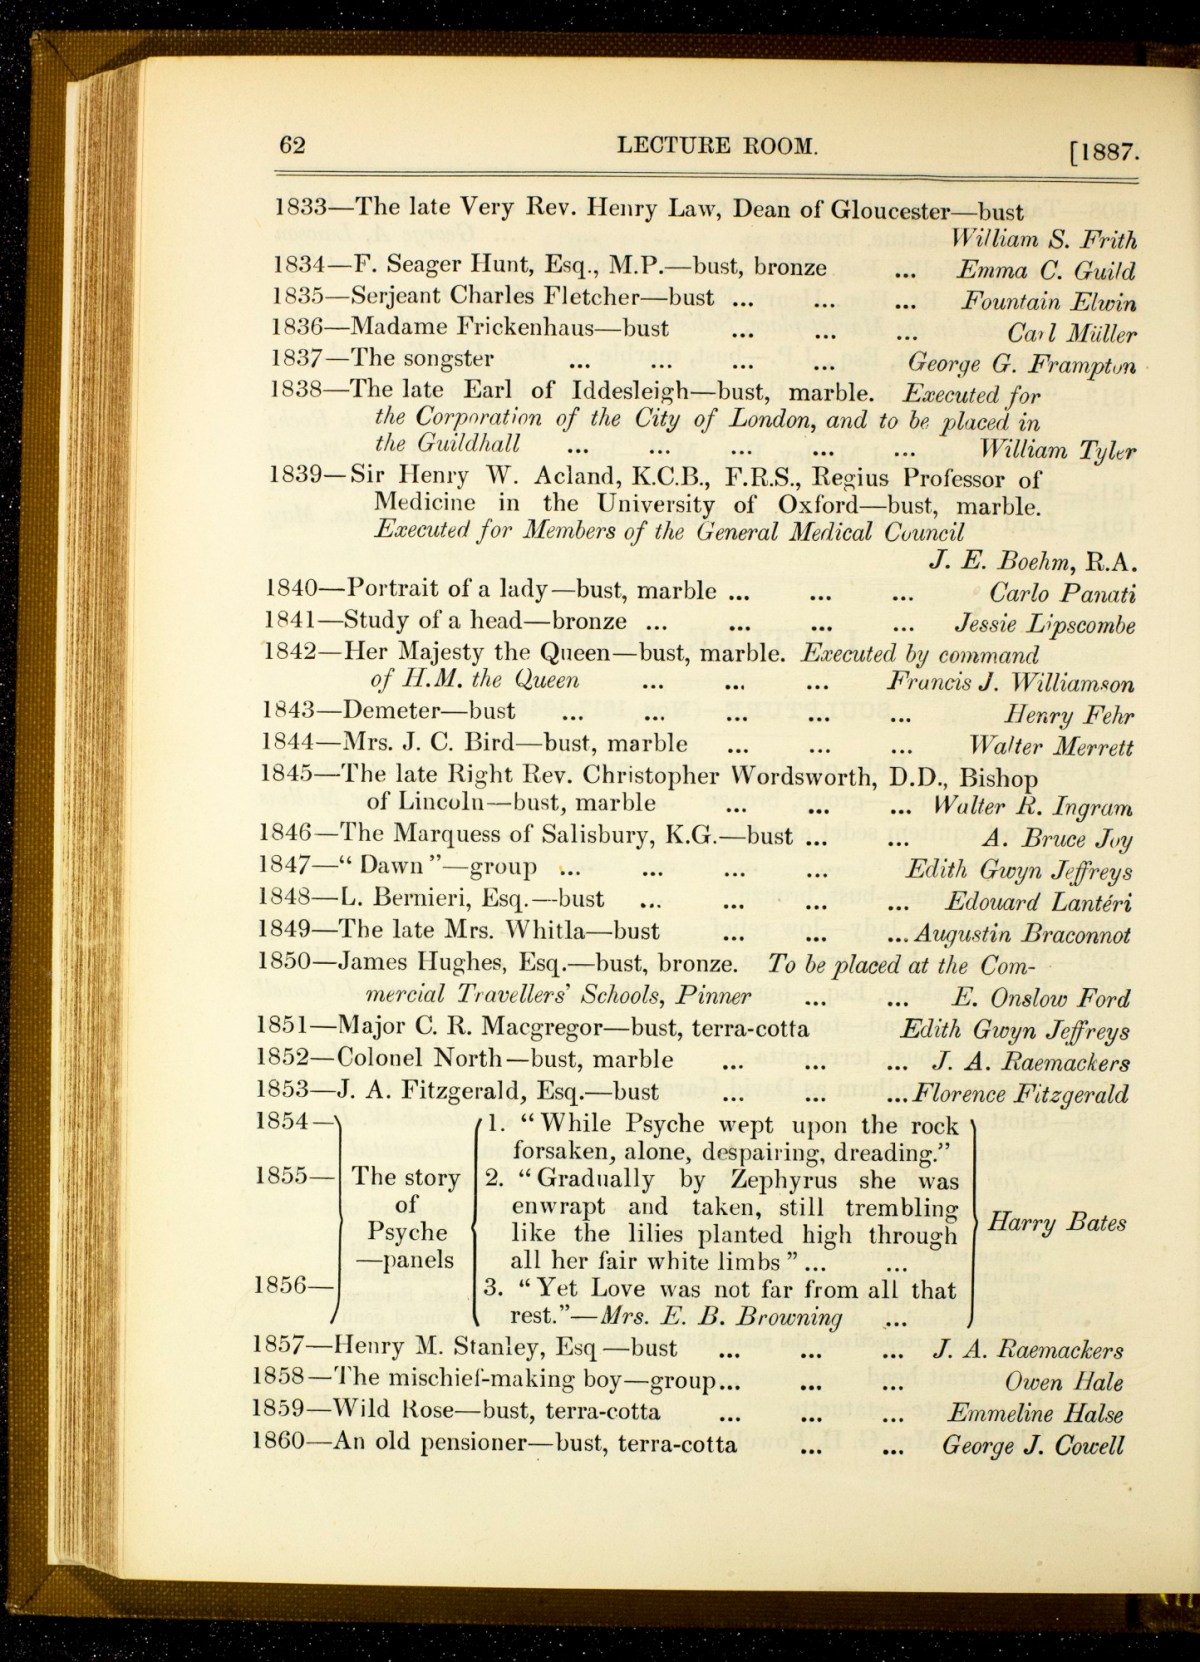 62 LECTURE ROOM. [1887.
1833—The late Very Rev. Henry Law, Dean of Gloucester—bust
William S. Frith
1834—F. Seager Hunt, Esq., M.P.—bust, bronze ... Emma C. Guild
1835—Serjeant Charles Fletcher—bust ... ... ... Fountain Elwin
1836—Madame Frickenhaus—bust ... ... ... Carl Müller
1837—The songster ... ... ... ... George G. Frampton
1838—The late Earl of Iddesleigh—bust, marble. Executed for
the Corporation of the City of London, and to be placed in
the Guildhall ... ... ... ... ... William Tyler
1839—Sir Henry W. Acland, K.C.B., F.R.S., Regius Professor of
Medicine in the University of Oxford—bust, marble.
Executed for Members of the General Medical Council
J. E. Boehm, R.A.
1840—Portrait of a lady—bust, marble ... ... ... Carlo Panati
1841—Study of a head—bronze ... ... ... ... Jessie Lipscombe
1842—Her Majesty the Queen—bust, marble. Executed by command
of H.M. the Queen ... ... ... Francis J. Williamson
1843—Demeter—bust ... ... ... ... ... Henry Fehr
1844—Mrs. J. C. Bird—bust, marble ... ... ... Walter Merrett
1845—The late Right Rev. Christopher Wordsworth, D.D., Bishop
of Lincoln—bust, marble ... ... ... Walter R. Ingram
1846—The Marquess of Salisbury, K.G.—bust ... ... A. Bruce Joy
1847—“Dawn”—group ... ... ... ... Edith Gwyn Jeffreys
1848—L. Bernieri, Esq.—bust ... ... ... ... Edouard Lantéri
1849—The late Mrs. Whitla—bust ... ... ... Augustin Braconnot
1850—James Hughes, Esq.—bust, bronze. To be placed at the Com-
mercial Travellers' Schools, Pinner ... ... E. Onslow Ford
1851—Major C. R. Macgregor—bust, terra-cotta Edith Gwyn Jeffreys
1852—Colonel North—bust, marble ... ... ... J. A. Raemackers
1853—J. A. Fitzgerald, Esq.—bust ... ... ... Florence Fitzgerald
1854— 1. “While Psyche wept upon the rock
forsaken, alone, despairing, dreading.”
1855— The story 2. “Gradually by Zephyrus she was
of enwrapt and taken, still trembling
Psyche like the lilies planted high through Harry Bates
—panels all her fair white limbs” ... ...
1856— 3. “Yet Love was not far from all that
rest.”—Mrs. E. B. Browning ...
1857—Henry M. Stanley, Esq—bust ... ... ... J. A. Raemackers
1858—The mischief-making boy—group... ... ... Owen Hale
1859—Wild Rose—bust, terra-cotta ... ... ... Emmeline Halse
1860—An old pensioner—bust, terra-cotta ... ... George J. Cowell